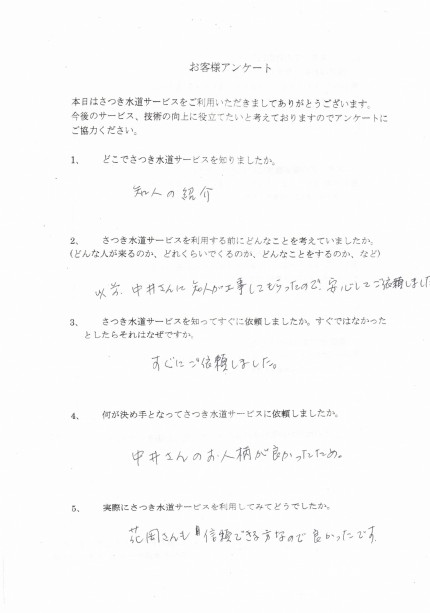 お客様アンケート
本日はさつき水道サービスをご利用いただきましてありがとうございます。
今後のサービス、技術の向上に役立てたいと考えておりますのでアンケートに
ご協力ください。
1、 どこでさつき水道サービスを知りましたか。
知人の紹介
2、 さつき水道サービスを利用する前にどんなことを考えていましたか。
(どんな人が来るのか、どれくらいでくるのか、どんなことをするのか、など)
以前、中井さんに知人が工事してもらったので、安心してご依頼しました
3、 さつき水道サービスを知ってすぐに依頼しましたか。すぐではなかった
としたらそれはなぜですか。
すぐにご依頼しました。
4、 何が決め手となってさつき水道サービスに依頼しましたか。
中井さんのお人柄が良かったため。
5、 実際にさつき水道サービスを利用してみてどうでしたか。
花岡さんも信頼できる方なので良かったです。